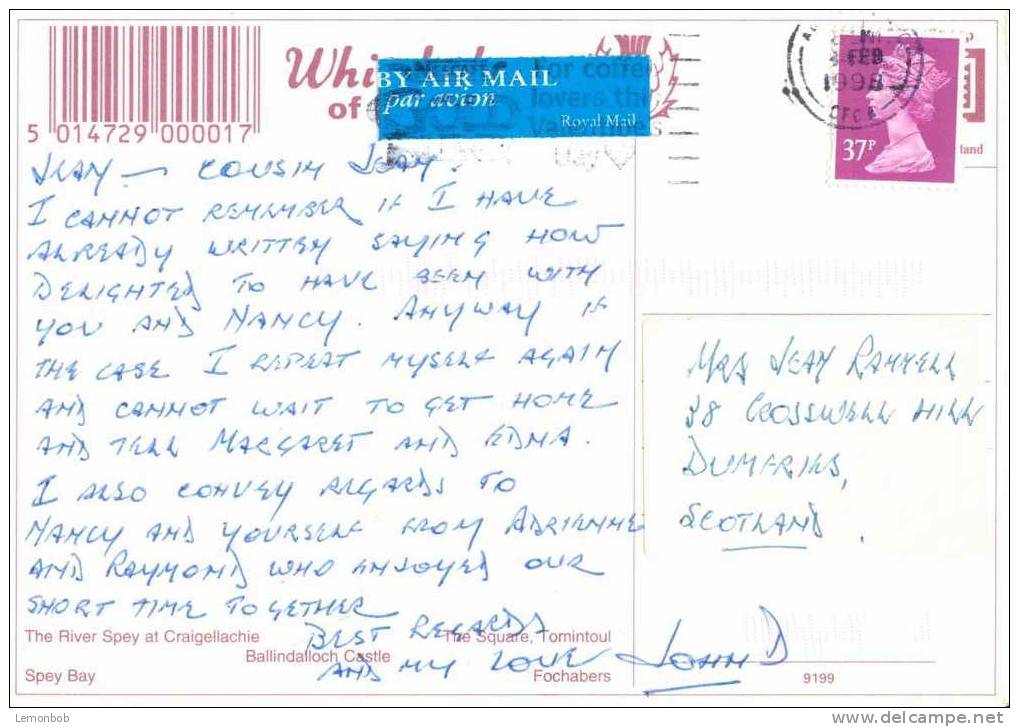 5 014729 000017
of
BY AIR MAIL
par avion
Royal Mail
for coffee
lovers the
Valentines
FEB
1998
37P
land
JEAN — COUSIN JEAN.
I CANNOT REMEMBER IF I HAVE
ALREADY WRITTEN SAYING HOW
DELIGHTED TO HAVE BEEN WITH
YOU AND NANCY. ANYWAY IF
THE CASE I REPEAT MYSELF AGAIN
AND CANNOT WAIT TO GET HOME
AND TELL MARGARET AND EDNA.
I ALSO CONVEY REGARDS TO
NANCY AND YOURSELF FROM ADRIENNE
AND RAYMOND WHO ENJOYED OUR
SHORT TIME TOGETHER
BEST REGARDS
AND MY LOVE JOHN D
MRS JEAN RAMMELL
38 CROSSWELL HILL
DUMFRIES,
SCOTLAND.
The River Spey at Craigellachie
The Square, Tomintoul
Ballindalloch Castle
Spey Bay
Fochabers
9199
© Lemonbob
delcampe.net